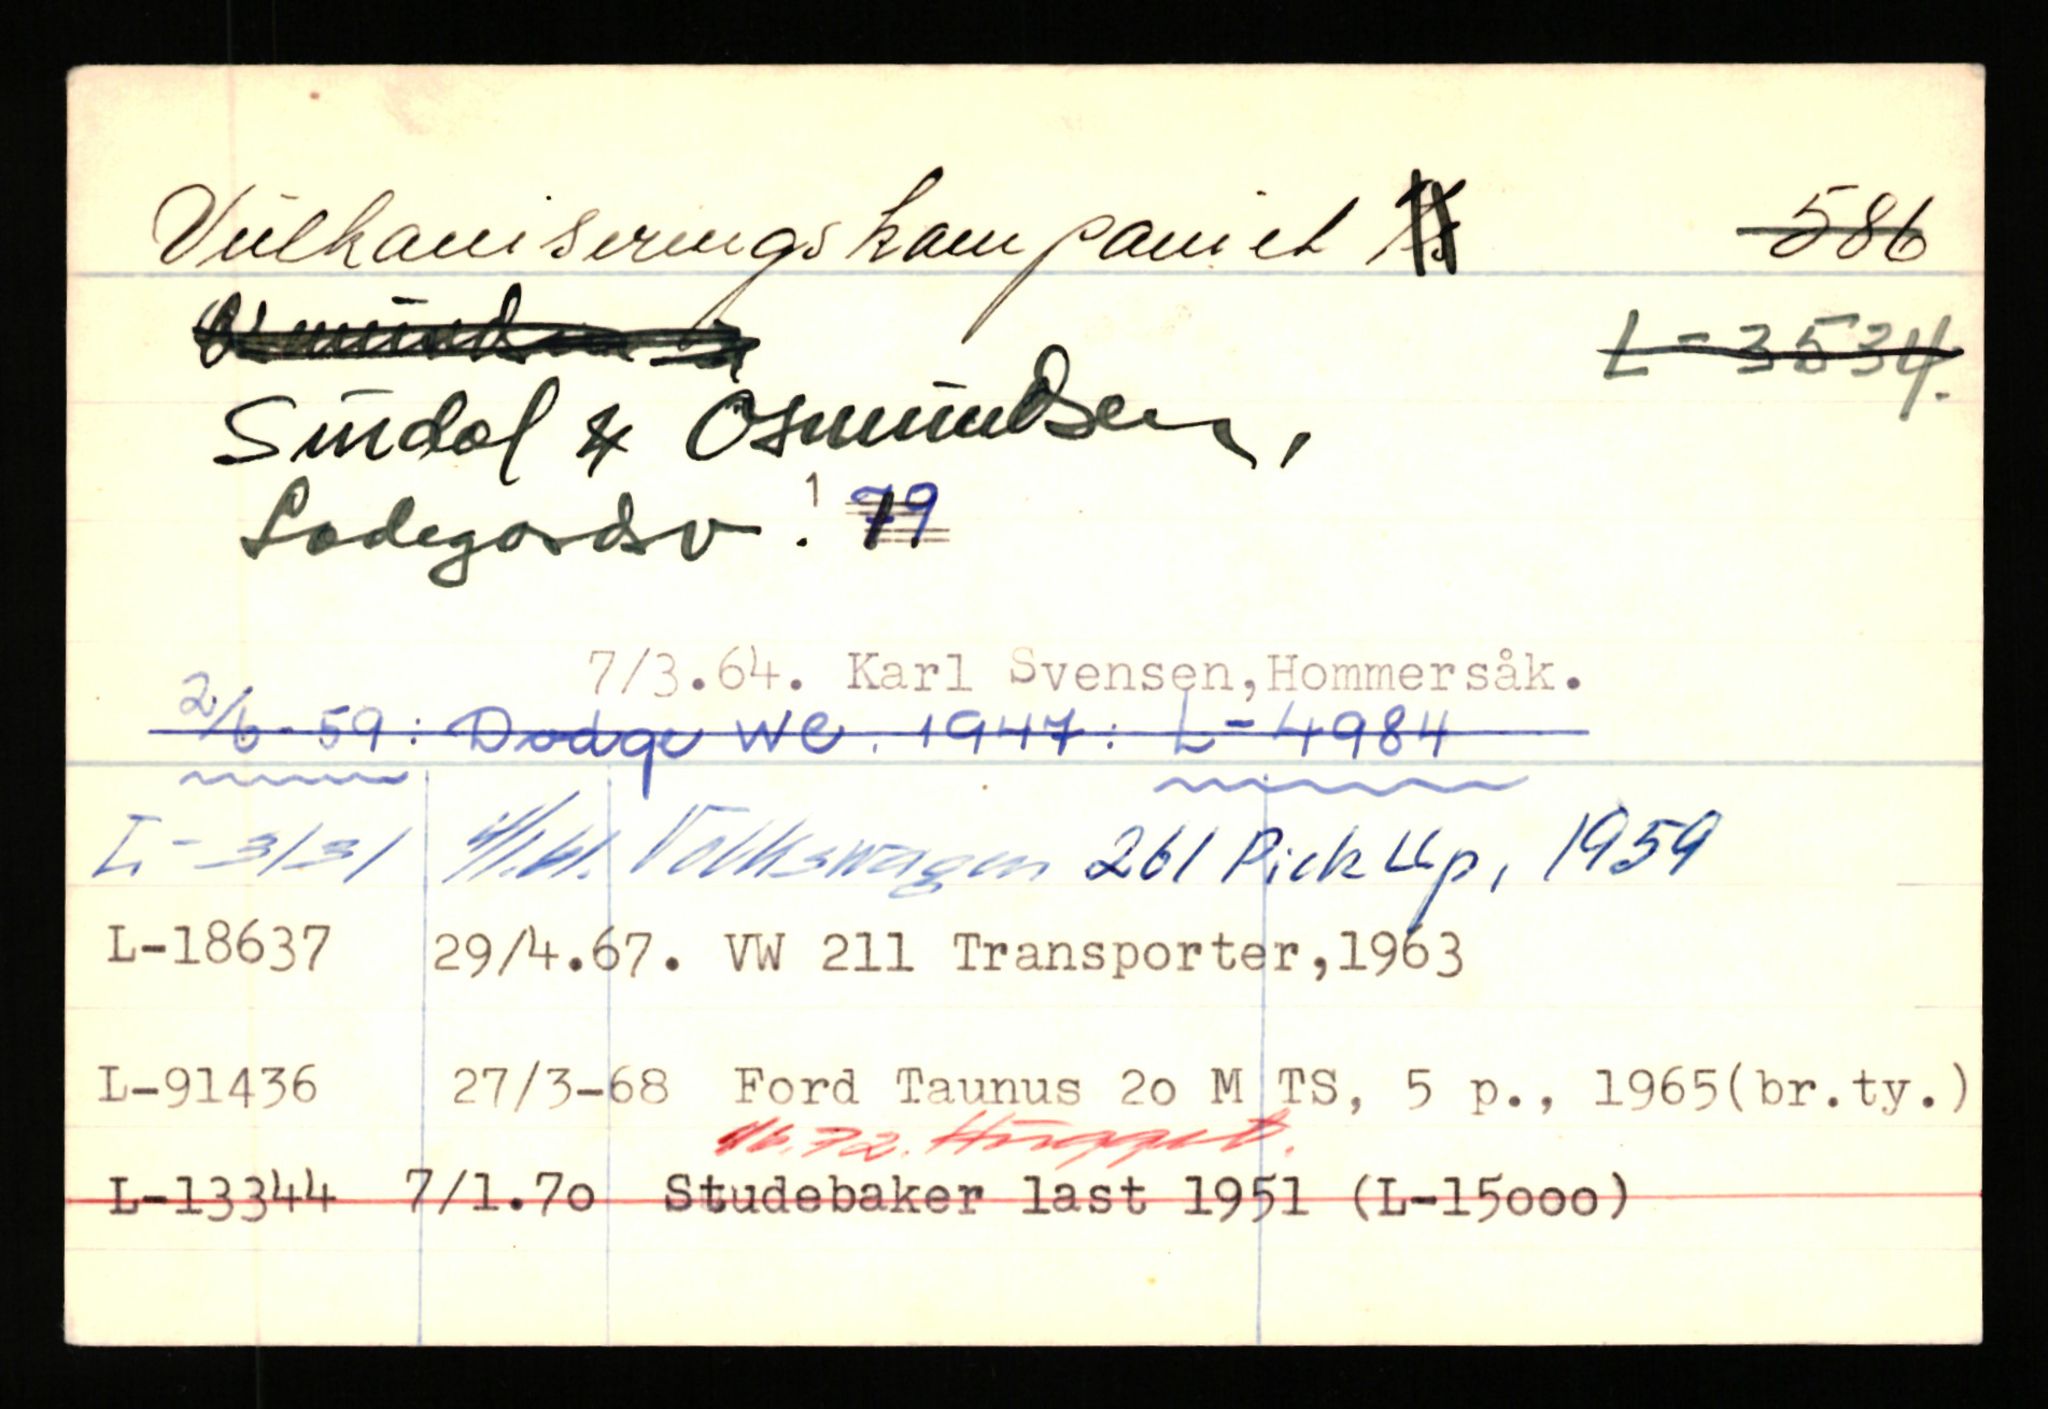 Vulkaniseringskompaniet 586
L-3534.
Sirdal & Osmundsen,
Ladegårdsv. 1 79
7/3.64. Karl Svensen,Hommersåk.
2/6-59: Dodge WC. 1947: L-4984
L-3131 Volkswagen 261 Pick Up, 1959
L-18637 29/4.67. VW 211 Transporter,1963
L-91436 27/3-68 Ford Taunus 2o M TS, 5 p., 1965(br.ty.)
72. Hugget.
L-13344 7/1.7o Studebaker last 1951 (L-15ooo)